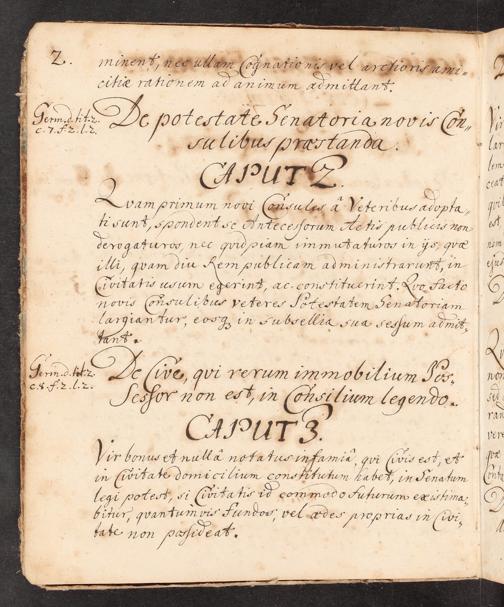 2.
minent, nec ullam Cognationis vel arctioris ami-
citiæ rationem ad animum admittant.
Germ. d. tit. 2.
c. 7. f. 2. l. 2.
De potestate Senatoria novis Con-
sulibus præstanda.
CAPUT 2.
Qvam primum novi Consules â Veteribus adopta-
ti sunt, spondent se Antecessorum Actis publicis non
derogaturos, nec qvidpiam immutaturos in ijs, qvæ
illi, qvam diu Rempublicam administrarunt, in
Civitatis usum egerint, ac constituerint. Qvo facto
novis Consulibus veteres Potestatem Senatoriam
largiantur, eosq, in subsellia sua sessum admit-
tant.
Germ. d. tit. 2.
c. 8. f. 2. l. 2.
De Cive, qvi rerum immobilium Pos-
sessor non est, in Consilium legendo.
CAPUT 3.
Vir bonus et nullâ notatus infamiâ, qvi Civis est, et
in Civitate domicilium constitutum habet, in Senatum
legi potest, si Civitatis id commodo futurum existima-
bitur, qvantumvis Fundos, vel ædes proprias in Civi-
tate non possideat.